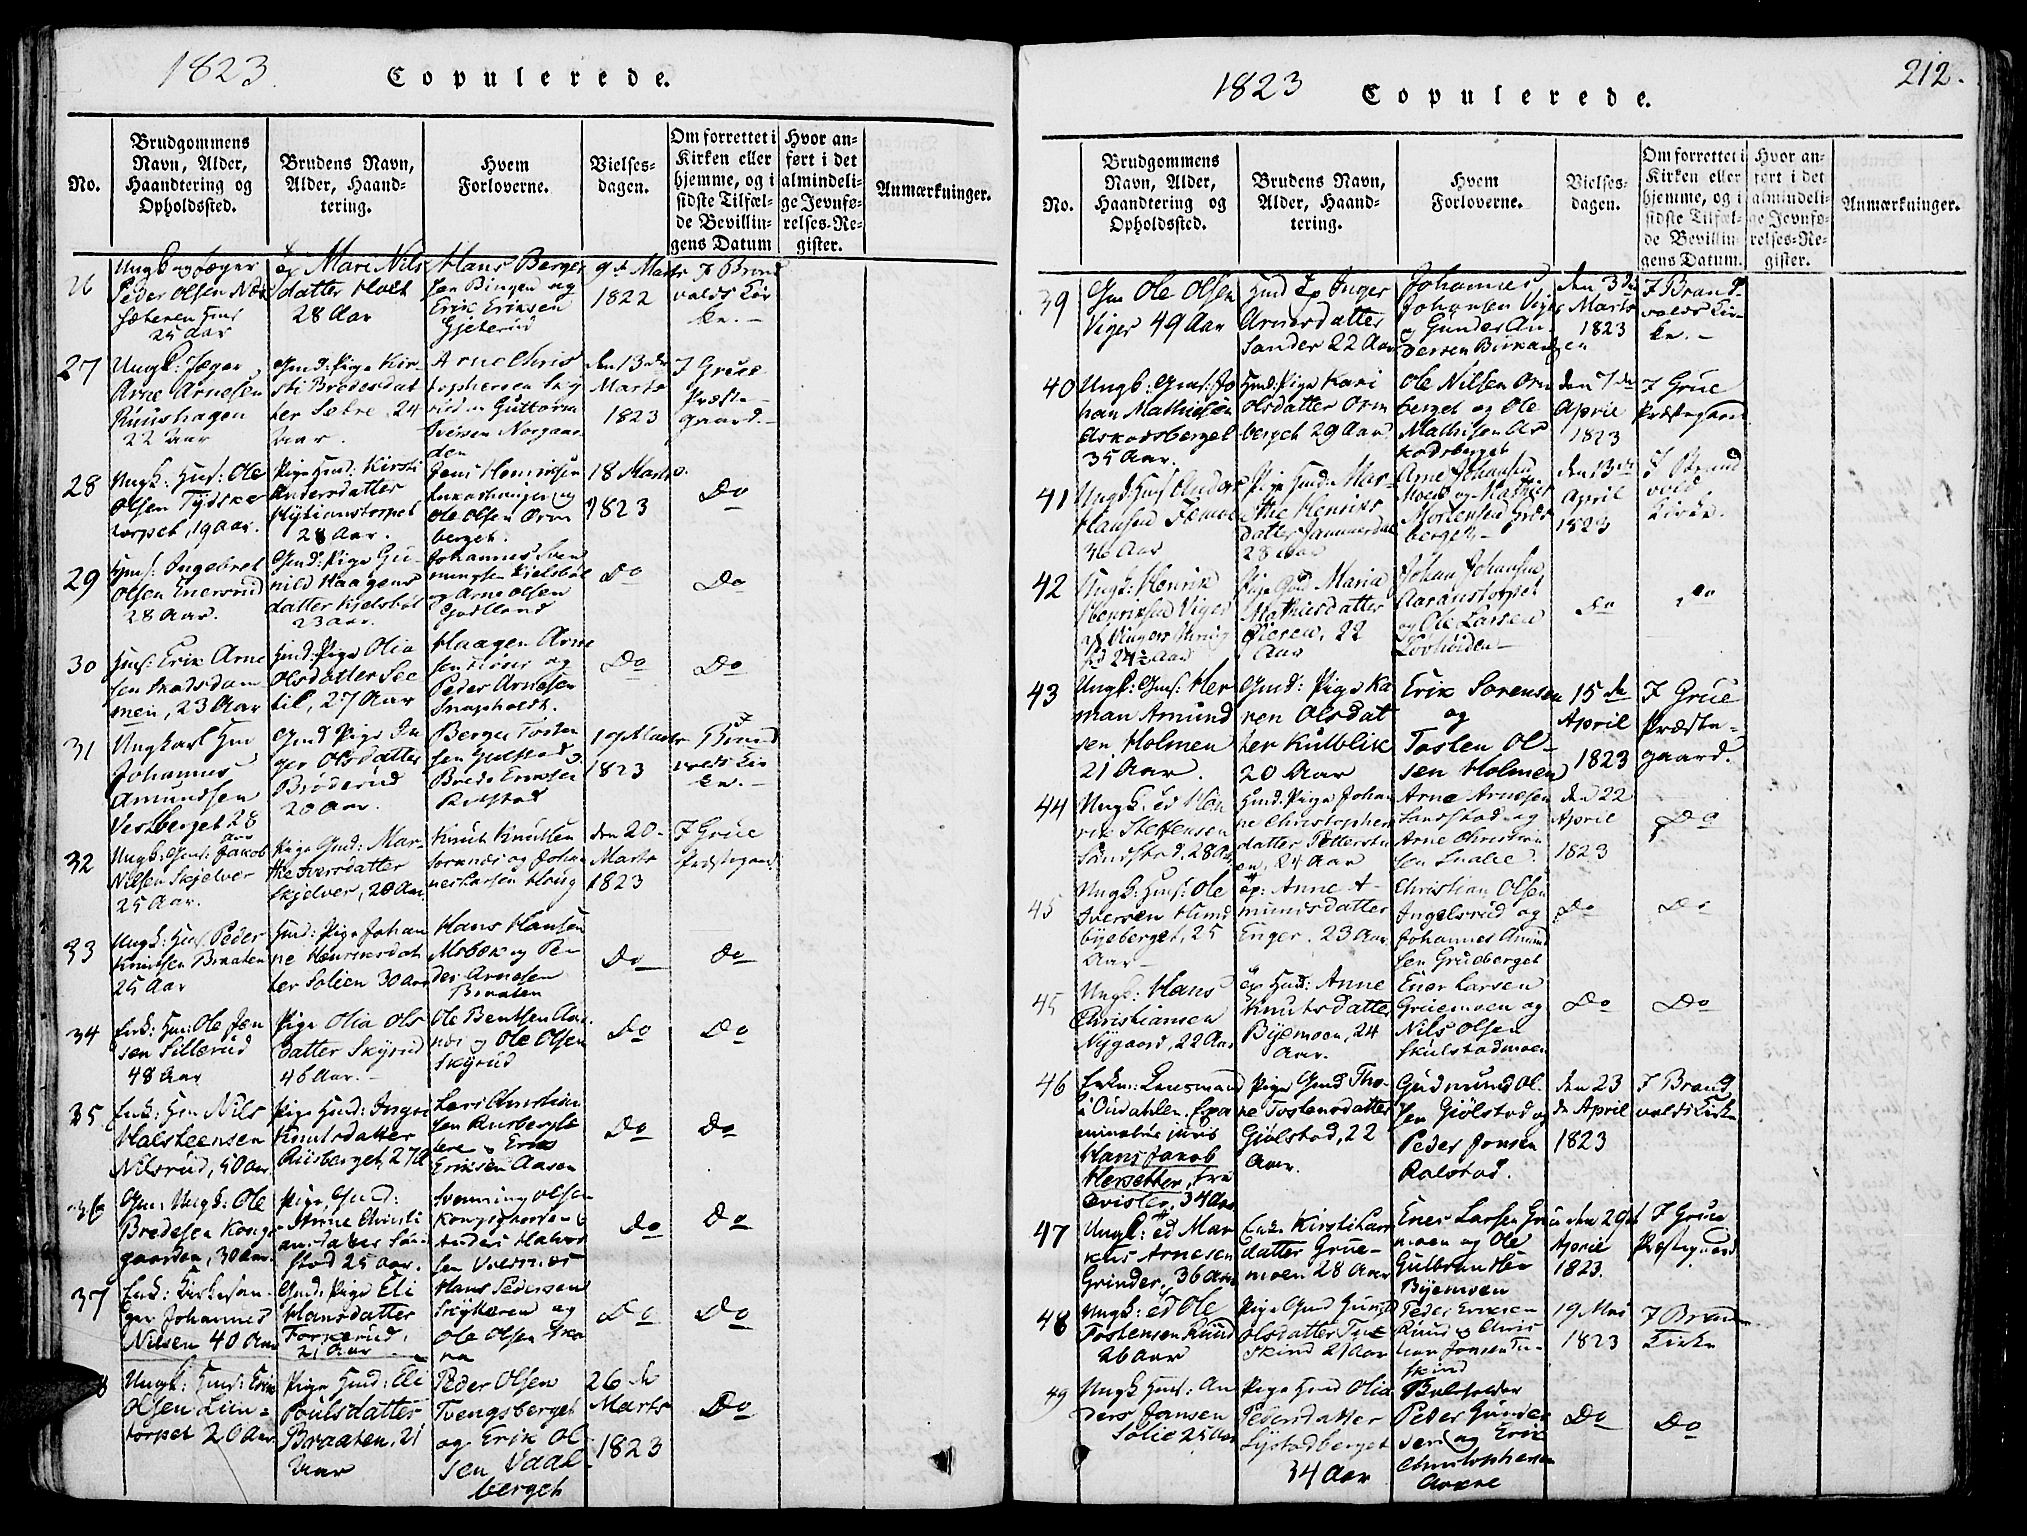 1823.
Copulerede.
No.
Brudgommens
Navn, Alder,
Haandtering og
Opholdssted.
Brudens Navn,
Alder, Haand-
tering.
Hvem
Forloverne.
Vielses-
dagen.
Om forrettet i
Kirken eller
hjemme, og i
sidste Tilfæl-
de Bevillin-
gens Datum
Hvor an-
ført i det
almindeli-
ge Jevnfø-
relses-Re-
gister.
Anmærkninger.
26
Ungk og Jæger
Peder Olsen
25 Aar
Mari Nils
datter Holt
28 Aar
Hans Berger
sen Bingen og
Erik Eriksen
Gjeterud
9 de Marts
1822
J Brand
volds Kir
ke.-
27
Ungk: Jæger
Arne Arnesen
Ruushagen
22 Aar
Gmd: Pige Kir
sti Bredesdat
ter Sebre, 24
Aar.
Arne Chris
tophersen
rud og Guttorm
Iversen Norgaar
den
den 13 de
Marts
1823
J Grue
Præste-
gaard.-
28
Ungk: Huusf: Ole
Olsen Tydske
torpet, 19 Aar.
Pige Hmd: Kirsti
Andersdatter
28 Aar.
Jens Henriksen
og
Ole Olsen Orm
berget.
18 Marts
1823
Do
29
Gmf: Ingebret
Olsen Enersrud
28 Aar.
Gmd: Pige Gu-
nild Haagens
datter Kielsbøl
23 aar.
Johannes Sven
ningsen Kielsbøl
og Arne Olsen
Do
Do
30
Hmf: Erik Arne
sen Skadsdam
men, 23 Aar
Hmd: Pige Olia
Olsdatter See
til, 27 Aar
Haagen Arne
sen og
Peder Arnesen
Do
Do
31
Ungkarl Hm
Johannes
Amundsen
Vestberget 28
Aar
Gmd Pige In
ger Olsdatter
Brøderud
20 Aar.
Berger Tosten
sen
Brede Eriksen
19 Marts
1823
J Brand
volds Kir
ke.-
32
Ungk: Gmf: Jakob
Nilsen Skjelver
25 Aar.
Pige Gmd: Mar
the Iversdatter
Skjelver, 20 Aar
Knud Knudsen
og Johan
nes Larsen Houg
den 20-
Marts
1823
J Grue
Præstegaard.
33
Ungk: Hmf Peder
Knudsen Braaten
25 Aar
Hmd: Pige Johan
ne Henriksdat
ter Solien 30 aar
Hans Hansen
Mobæk og Pe-
der Arnesen
Braaten
Do
Do
34
Enk: Hmf: Ole Jen
sen Sillerud
48 Aar
Pige Olia Ols
datter Skyrud
46 Aar.-
Ole Bentsen Aar
næs og Ole Olsen
Skyrud
Do
Do
35
Enk: Hm Nils
Halsteensen
Nilsrud, 50 Aar
Pige Hmd: Inger
Knutsdatter
Riisberget, 27 A
Lars Christian
sen
Eriksen Aasen
Do
Do
36
Gm: Ungk: Ole
Bredesen Kongs
gaarden, 30 Aar.
Pige Gmd:
Anne Christi
ansdatter
stad 25 aar.
Svenning Olsen
Anders Halvor
sen
Do
Do
37
Enk: Kirkesan
ger Johannes
Nilsen 40 Aar
Gmd: Pige Eli
Hansdatter
Torkerud,
21 Aar
Hans Pedersen
og
Ole Olsen
Do
Do
Ungk: Hmf: Erik
Olsen Lien-
torpet 20 Aar
Pige Hmd: Eli
Poulsdatter
Braaten, 21
Aar
Peder Olsen
Tvengsberget
og Erik Ol
sen Vaal
berget
26 de
Marts
1823
Do
212.
1823
Copulerede.
No.
Brudgommens
Navn, Alder,
Haandtering og
Opholdssted.
Brudens Navn,
Alder, Haand-
tering.
Hvem
Forloverne.
Vielses-
dagen.
Om forrettet i
Kirken eller
hjemme, og i
sidste Tilfæl-
de Bevillin-
gens Datum.
Hvor an-
ført i det
almindeli-
ge Jevnfø-
relses-Re-
gister.
Anmærkninger.
39
Gm Ole Olsen
Viger 49 Aar
Hmd Ep Inger
Arnesdatter
Sander 22 Aar
Johannes
Johansen Viger
og Gunder An
dersen
den 3 de
Marts
1823
J Brand
volds Kir
ke.-
40
Ungk: Gmf: Jo
han Mathiesen
Askodsberget
35 Aar.
Hmd: Pige Kari
Olsdatter Orm
berget 29 Aar
Ole Nilsen Orm
berget og Ole
Mathisen As
kodsberget
den 7 de
April
1823
J Grue
Præstegaard
41
Ungk: Hmf Anders
Hansen
36 Aar
Pige Hmd: Mar-
the Henriks
datter Jammerdal
28 Aar
Arne Johansen
og Mathis
Mortensen
berget.-
den 13 de
April
1823
J Brand
vold
Kirke.
42
Ungk: Henrik
Henriksen Viger
24½ Aar
Pige Gmd: Maria
Mathisdatter
22
Aar
Johan Johansen
Aaranstorpet
og Ole Larsen
Lövhölden-
Do
Do
43
Ungk: Gmf: Her
man Amund
sen Holmen
21 Aar.
Gmd: Pige Ka
ren Olsdat
ter Kulblik
20 Aar
Erik Sorensen
og
Tosten Ol-
sen Holmen
15 de
April
1823
J Grue
Præste-
gaard.
44
Ungk: ed Hen
rik Steffensen
Sandstad, 28 Aar
Hmd: Pige Johan
ne Christophers
datter Petterstu
en, 24 Aar
Arne Arnesen
Sandstad og
Arne Christian
sen
den 22
April
1823
Do
45
Ungk: Hmf: Ole
Iversen Hund
byeberget, 25
Aar-
ep: Anne A-
mundsdatter
Enger, 23 Aar.
Christian Olsen
Ingelsrud og
Johannes Amund
sen Grueberget
Do
Do
45
Ungk: Hans
Christiansen
Nygaard, 22 Aar
ep Hmd: Anne
Knutsdatter
Byemoen, 24
Aar.
Ener Larsen
Gruemoen og
Nils Olsen
Skulstadmoen
Do
Do
46
Enkm: Lensmand
i Oudahlen Exa
minatus juris
Hans Jakob
Hersetter, Fra
34 Aar
Pige Gmd Tho-
ne Tostensdatter
Gjölstad, 22
Aar.
Gudmund Ol
sen Gjölstad og
Peder Jonsen
Kalstad.
den 23
de April
1823
J Brand
volds Kirke
47
Ungk: ed Mar
kus Arnesen
Grinder, 36 Aar
Enke Kirsti Lars
datter Grue-
moen 28 Aar
Ener Larsen Gru
moen og Ole
Gulbrandsen
Byemoen
den 29 d
April
1823.
J Grue
Præstegaard
48
Ungk: ed Ole
Tostensen Ruud
26 Aar
Pige Gmd Gunild
Olsdatter Tu
skind 21 Aar
Peder Eriksen
Ruud og Chris
ten Jonsen Tu
skind
19 Mai
1823
J Brand
Kirke
49
Ungk Hmf: An
ders Jonsen
Solie 25 Aar
Pige Hmd Olia
Pedersdatter
Lystadberget
34 Aar
Peder Gunder
sen og Erik
Christophersen
Do
Do